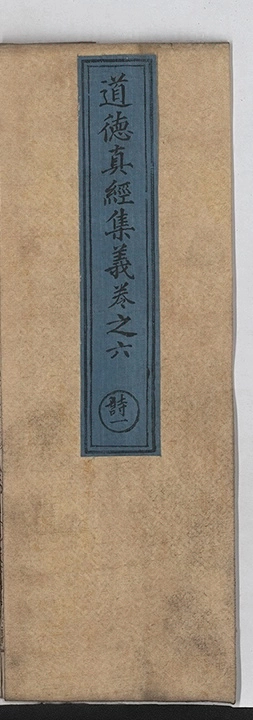 道德真經集義卷之六
詩一